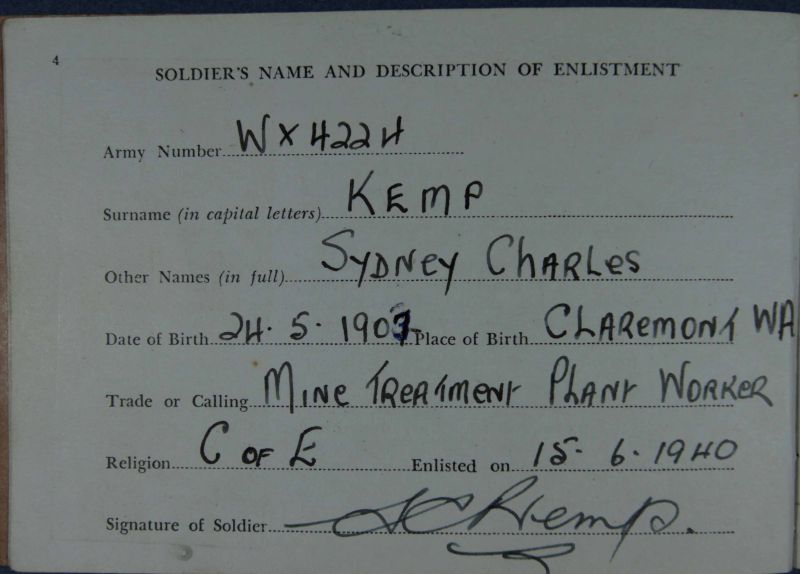 4
SOLDIER'S NAME AND DESCRIPTION OF ENLISTMENT
Army Number WX4224
Surname (in capital letters) KEMP
Other Names (in full) SYDNEY CHARLES
Date of Birth 24.5.1907 Place of Birth CLAREMONT WA
Trade or Calling MINE TREATMENT PLANT WORKER
Religion C OF E Enlisted on 15.6.1940
Signature of Soldier S C Kemp.